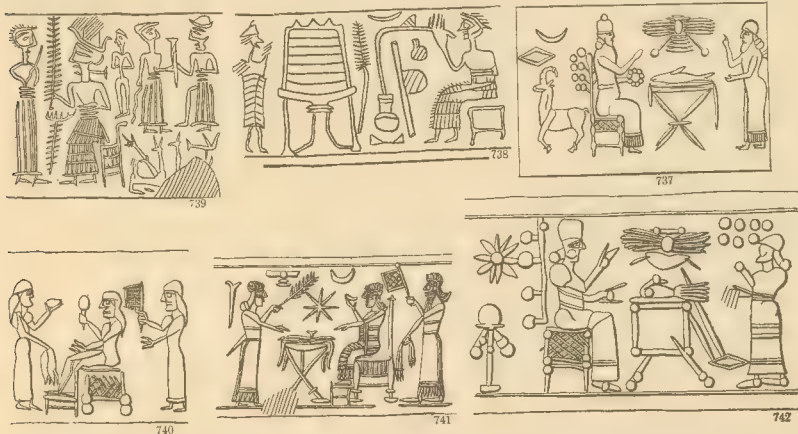 739
738
737
740
741
742